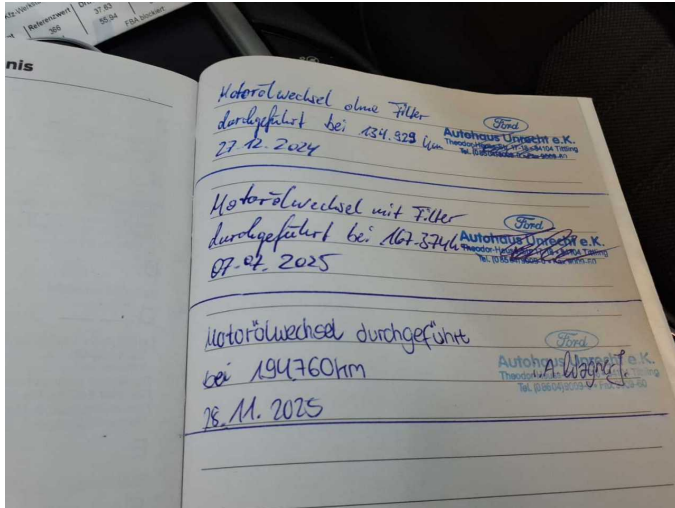 Referenzwert
366
37,63
55,94
FBA blockiert
nis
Motorölwechsel ohne Filter
durchgeführt bei 134.929 km
27.12.2024
Ford
Autohaus Unrecht e.K.
Tittling
Motorölwechsel mit Filter
durchgeführt bei 167.374
07.07.2025
Ford
Autohaus Unrecht e.K.
Tittling
Motorölwechsel durchgeführt
bei 194.760km
28.11.2025
Ford
Autohaus Unrecht e.K.
A. Wagner
Tittling